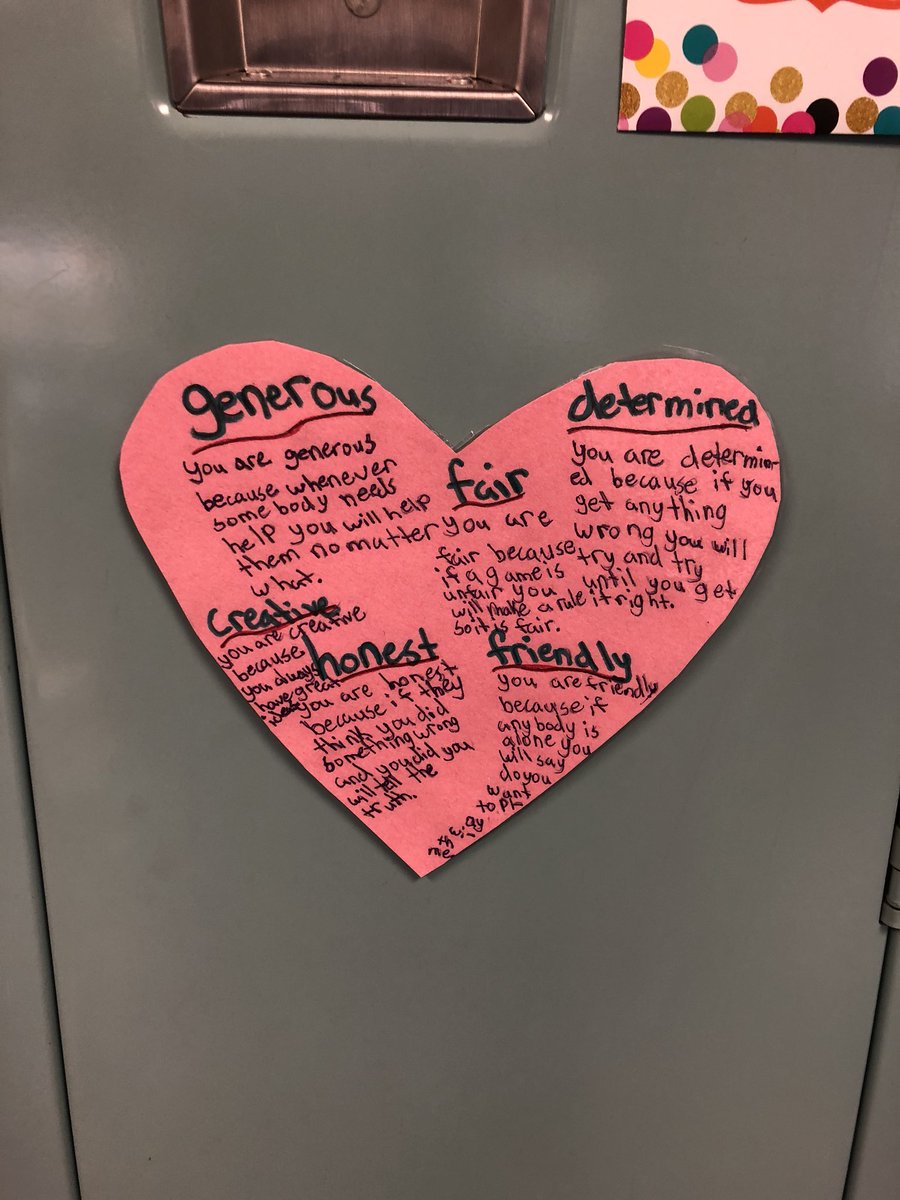 generous
you are generous
because whenever
somebody needs
help you will help
them no matter
what.
fair
you are
fair because
if a game is
unfair you
will make a rule
so it is fair.
determined
you are determin-
ed because if you
get anything
wrong you will
try and try
until you get
it right.
creative
you are creative
because
you always
have great
ideas
honest
you are honest
because if they
think you did
something wrong
and you did you
will tell the
truth.
friendly
you are friendly
because if
anybody is
alone you
will say
do you
want
to Pl
ay
with
me